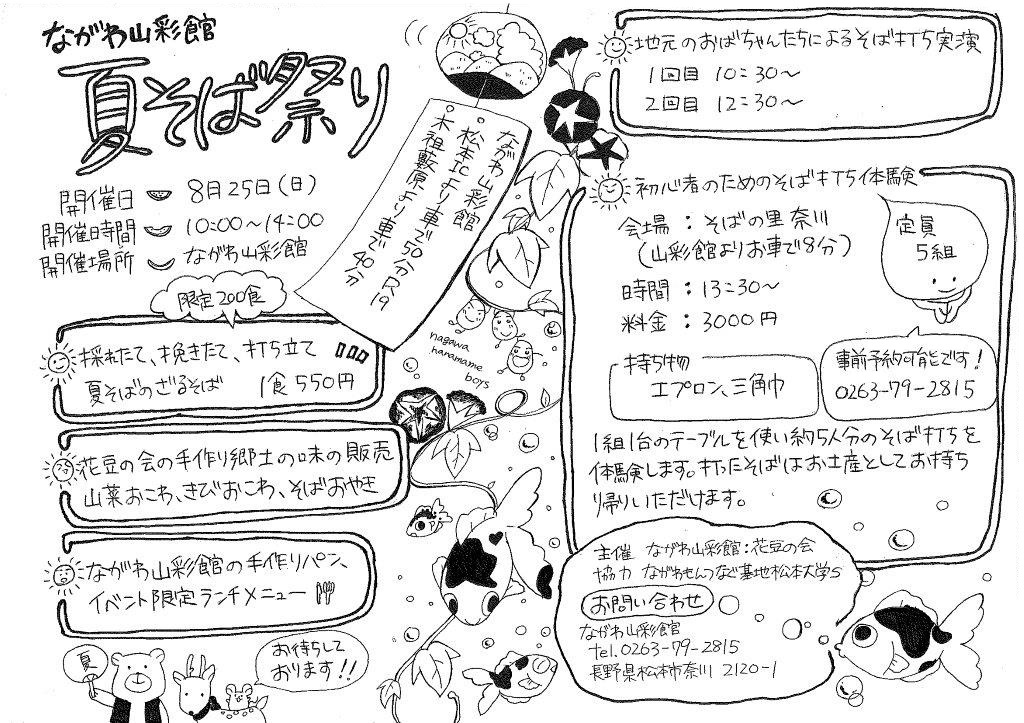 ながわ山彩館
夏そば祭り
開催日 8月25日(日)
開催時間 10:00〜14:00
開催場所 ながわ山彩館
ながわ山彩館
・松本ICより車で50分R19
・木祖薮原より車で40分
限定200食
採れたて、挽きたて、打ち立て
夏そばのざるそば 1食550円
花豆の会の手作り郷土の味の販売
山菜おこわ、きびおこわ、そばおやき
ながわ山彩館の手作りパン、
イベント限定ランチメニュー
夏
お待ちして
おります!!
nagawa
hanamame
boys
地元のおばちゃんたちによるそば打ち実演
1回目 10:30〜
2回目 12:30〜
初心者のためのそば打ち体験
会場:そばの里 奈川
(山彩館よりお車で8分)
時間:13:30〜
料金:3000円
定員
5組
持ち物
エプロン、三角巾
事前予約可能です!
0263-79-2815
1組1台のテーブルを使い約5人分のそば打ちを
体験します。打ったそばはお土産としてお持ち
り帰りいただけます。
主催 ながわ山彩館:花豆の会
協力 ながわもんつなど基地松本大学S
お問い合わせ
ながわ山彩館
tel.0263-79-2815
長野県松本市奈川 2120-1